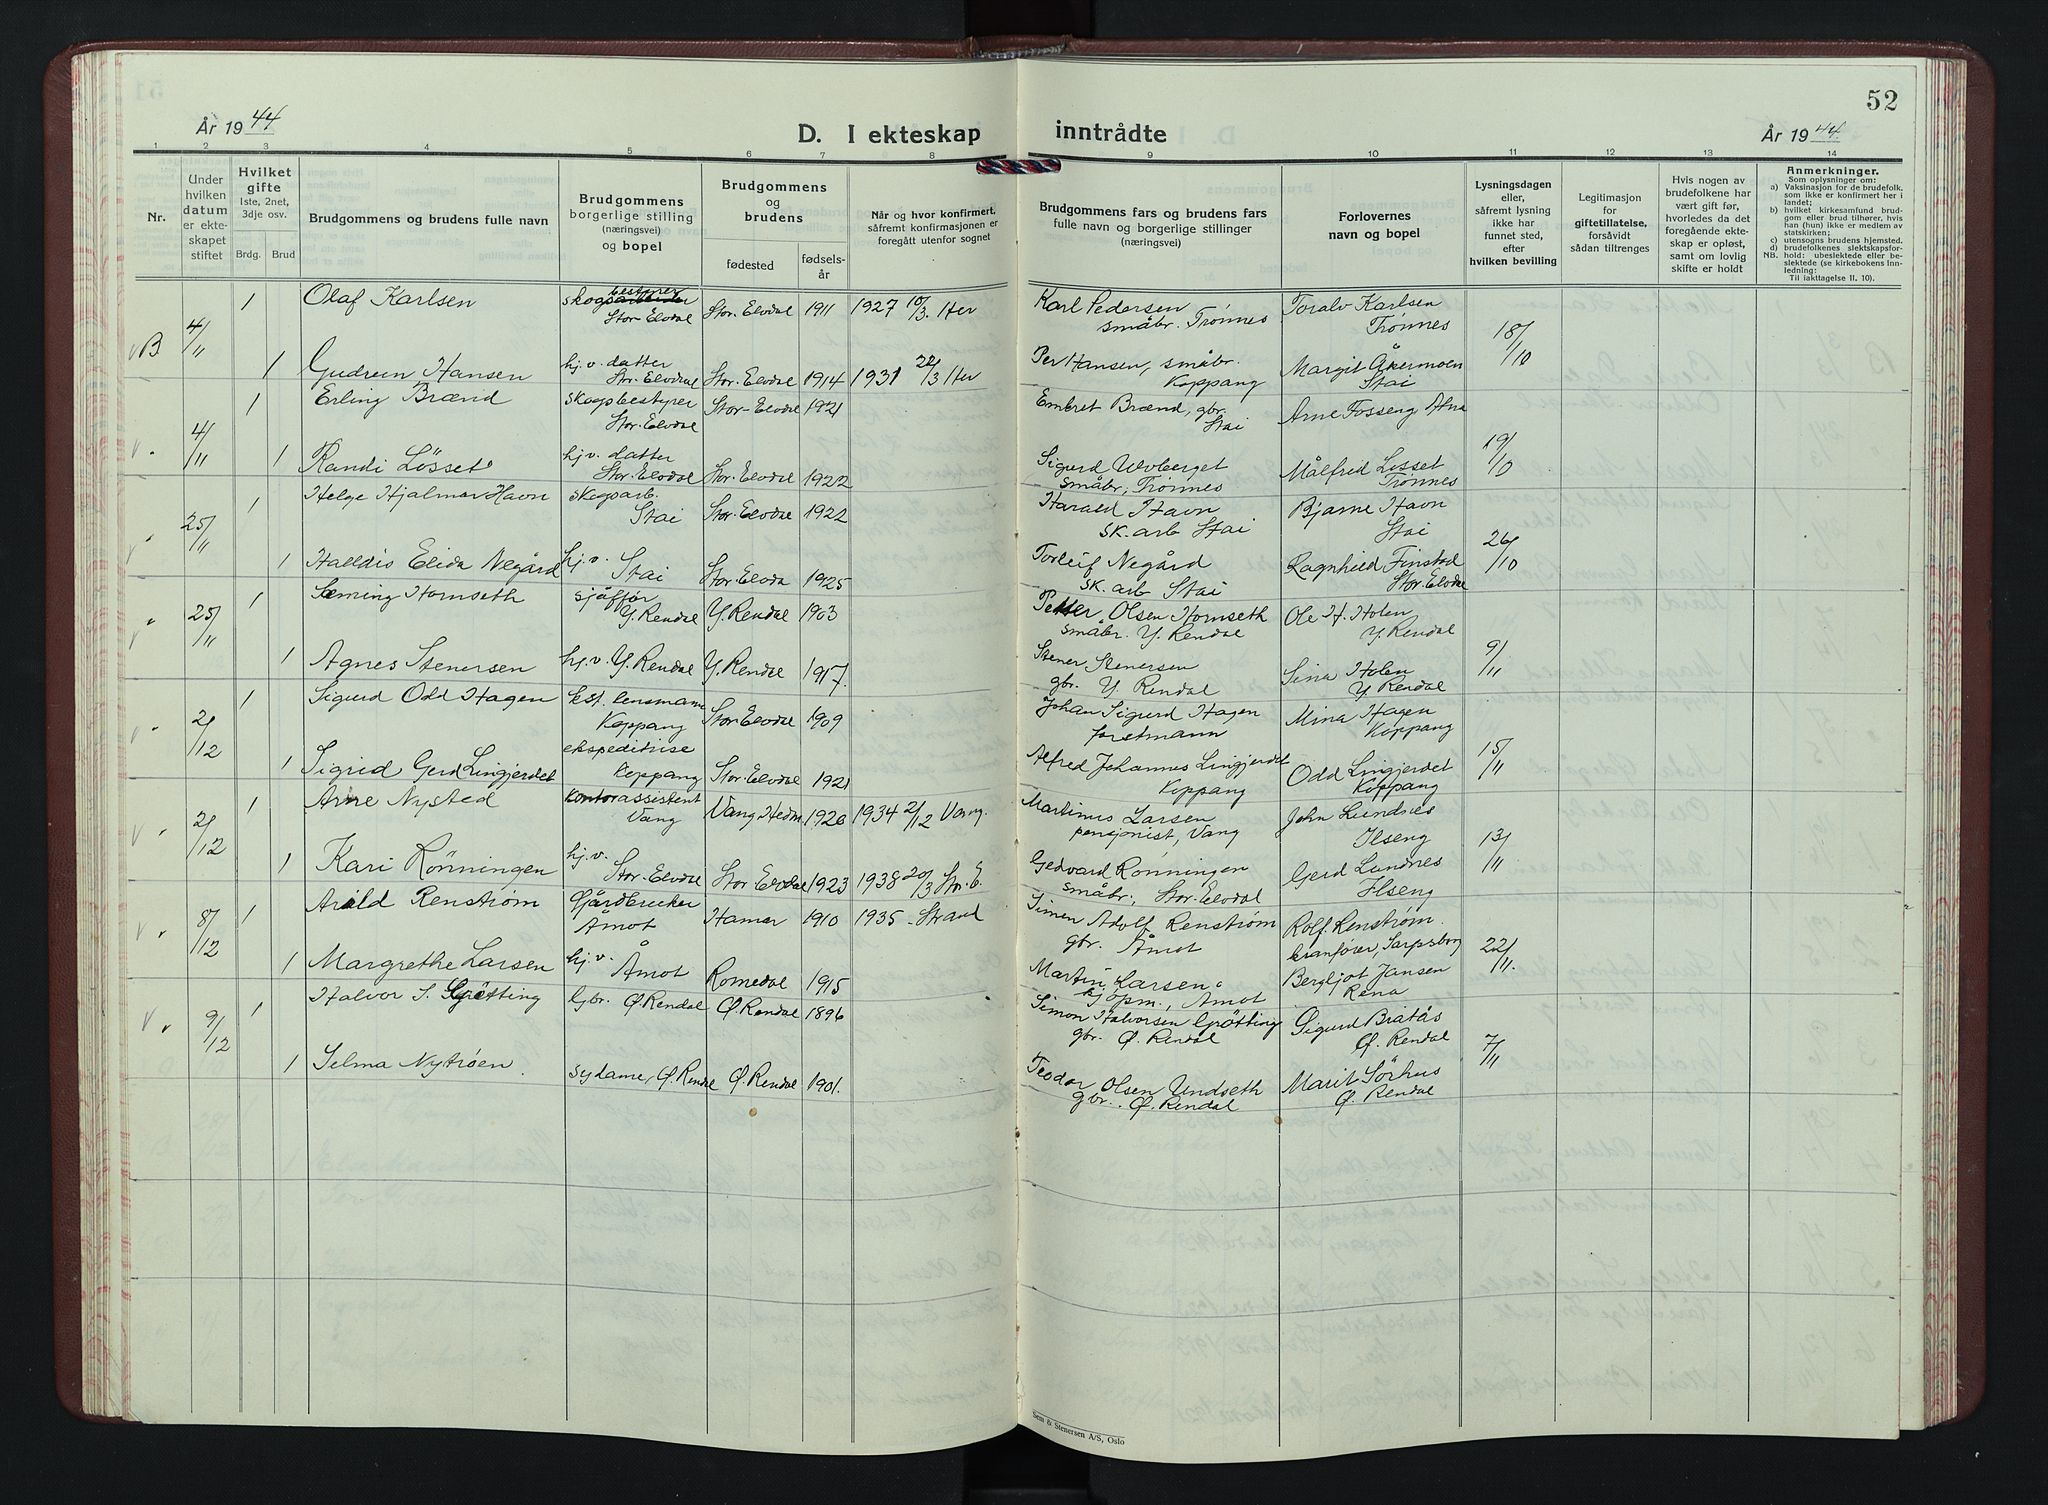 52
År 1944
D. I ekteskap inntrådte
År 1944.
1 2 3 4 5 6 7 8 9 10 11 12 13 14
Nr.
Under hvilken datum er ekteskapet stiftet
Hvilket gifte
1ste, 2net, 3dje osv.
Brdg. Brud
Brudgommens og brudens fulle navn
Brudgommens borgerlige stilling (næringsvei) og bopel
Brudgommens og brudens
fødested
fødselsår
Når og hvor konfirmert, såfremt konfirmasjonen er foregått utenfor sognet
Brudgommens fars og brudens fars fulle navn og borgerlige stillinger (næringsvei)
Forlovernes navn og bopel
Lysningsdagen eller, såfremt lysning ikke har funnet sted, efter hvilken bevilling
Legitimasjon for giftetillatelse, forsåvidt sådan tiltrenges
Hvis nogen av brudefolkene har vært gift før, hvorledes da det foregående ekteskap er opløst, samt om lovlig skifte er holdt
Anmerkninger.
Som oplysninger om:
a) Vaksinasjon for de brudefolk, som ikke er konfirmert her i landet;
b) hvilket kirkesamfund brudgom eller brud tilhører, hvis han (hun) ikke er medlem av statskirken;
c) utensogns brudens hjemsted.
d) brudefolkenes slektskapsforhold: ubeslektede eller beslektede (se kirkebokens Innledning:
NB. Til iakttagelse II. 10).
B 4/11 1 Olaf Karlsen skogsbestyrer Stor-Elvdal Stor-Elvdal 1911 1927 10/3. Her Karl Pedersen småbr. Trønnes Toralv Karlsen Trønnes 18/10
1 Gudrun Hansen hj.v. datter Stor-Elvdal Stor-Elvdal 1914 1931 22/3 Her Per Hansen, småbr. Koppang Margit Åkermoen Stai
4/11 1 Erling Brænd skogsbestyrer Stor-Elvdal Stor-Elvdal 1921 Embret Brænd, gbr. Stai Arne Fosseng Atna 19/10
1 Randi Løsset hj.v. datter Stor-Elvdal Stor-Elvdal 1922 Sigurd Uvberget småbr, Trønnes Målfrid Løsset Trønnes
25/11 1 Helge Hjalmar Havn skogsarb. Stai Stor-Elvdal 1922 Harald Havn sk. arb Stai Bjarne Havn Stai 26/10
1 Halldis Elida Negård hj.v. Stai Stor-Elvda 1925 Torleif Negård sk. arb Stai Ragnhild Finstad Stor-Elvdal
25/11 1 Sæming Hornseth sjåffør Y. Rendal Y. Rendal 1903 Petter Olsen Hornseth småbr. Y. Rendal Ole H. Holen Y. Rendal 9/11
1 Agnes Stenersen hj.v. Y. Rendal Y. Rendal 1917. Stener Stenersen gbr. Y. Rendal Sina Holen Y. Rendal
2/12 1 Sigurd Odd Hagen kst. lensmann Koppang Stor-Elvdal 1909 Johan Sigurd Hagen forstmann Mina Hagen Koppang 15/11
1 Sigrid Gerd Lingjerdet ekspeditrise Koppang Stor-Elvdal 1921 Alfred Johannes Lingjerdet Koppang Odd Lingjerdet Koppang
2/12 1 Arne Nysted kontorassistent Vang Vang Hedm 1920 1934 2/12 Vang. Martinus Larsen pensjonist, Vang John Lundnes Ilseng 13/11
1 Kari Rønningen hj.v. Stor-Elvdal Stor Elvdal 1923 1938 20/3 Stor-E. Gedvard Rønningen småbr., Stor-Elvdal Gerd Lundnes Ilseng
8/12 1 Arild Renstrøm Gårdbruker Åmot Hamar 1910 1935 - Strand Simen Adolf Renstrøm gbr. Åmot Rolf Renstrøm. kranfører, Sarpsborg 22/11.
1 Margrethe Larsen hj.v. Åmot Romedal 1915 Martin Larsen kjøpm., Åmot Bergljot Jansen Rena
9/12 1 Halvor S. Grøtting Gbr. Ø. Rendal Ø. Rendal 1896 Simon Halvorsen Grøtting gbr. Ø. Rendal Sigurd Bratås Ø. Rendal 7/11
1 Selma Nytrøen. sydame, Ø. Rendal Ø. Rendal 1901. Teodor Olsen Undseth gbr. Ø. Rendal Marit Sørhus Ø. Rendal
Sem & Stenersen A/S, Oslo